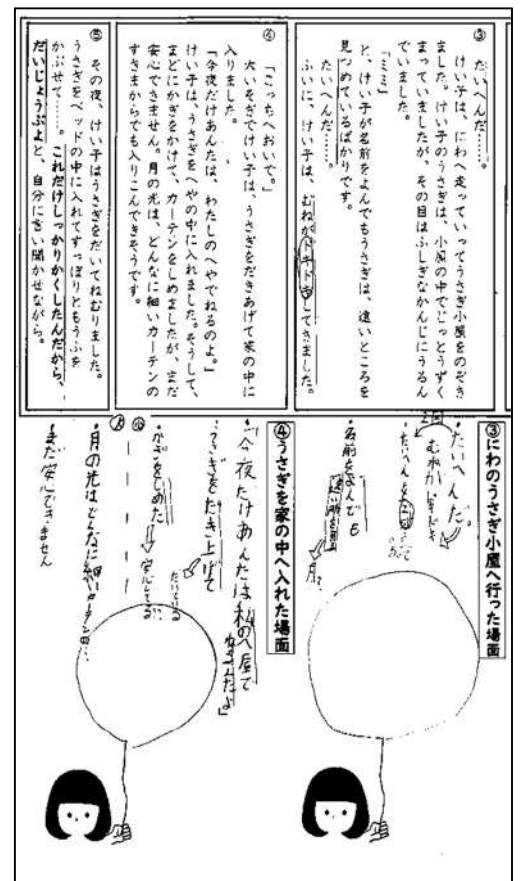 ③
たいへんだ……。
けい子は、にわへ走っていってうさぎ小屋をのぞき
ました。けい子のうさぎは、小屋の中でじっとうずく
まっていましたが、その目はふしぎなかんじにうるん
でいました。
「ミミ」
と、けい子が名前をよんでもうさぎは、遠いところを
見つめているばかりです。
たいへんだ……。
ふいに、けい子は、むねがドキドキしてきました。
④
「こっちへおいで。」
大いそぎでけい子は、うさぎをだきあげて家の中に
入りました。
「今夜だけあんたは、わたしのへやでねるのよ。」
けい子は、うさぎをへやの中に入れました。そうして、
まどにかぎをかけて、カーテンをしめましたが、まだ
安心できません。月の光は、どんなに細いカーテンの
すきまからでも入りこんできそうです。
⑤
その夜、けい子はうさぎをだいてねむりました。
うさぎをベッドの中に入れてすっぽりともうふを
かぶせて……。これだけしっかりかくしたんだから、
だいじょうぶよと、自分に言い聞かせながら。
③にわのうさぎ小屋へ行った場面
・たいへんだ。
むねがドキドキ
・名前をよんでも
月?
④うさぎを家の中へ入れた場面
・「今夜だけあんたは私のへ屋で
ねるんだよ」
うさぎをだき上げて
・かぎをしめた
安心してる
・月の光はどんなに細いカーテンの…
・まだ安心できません